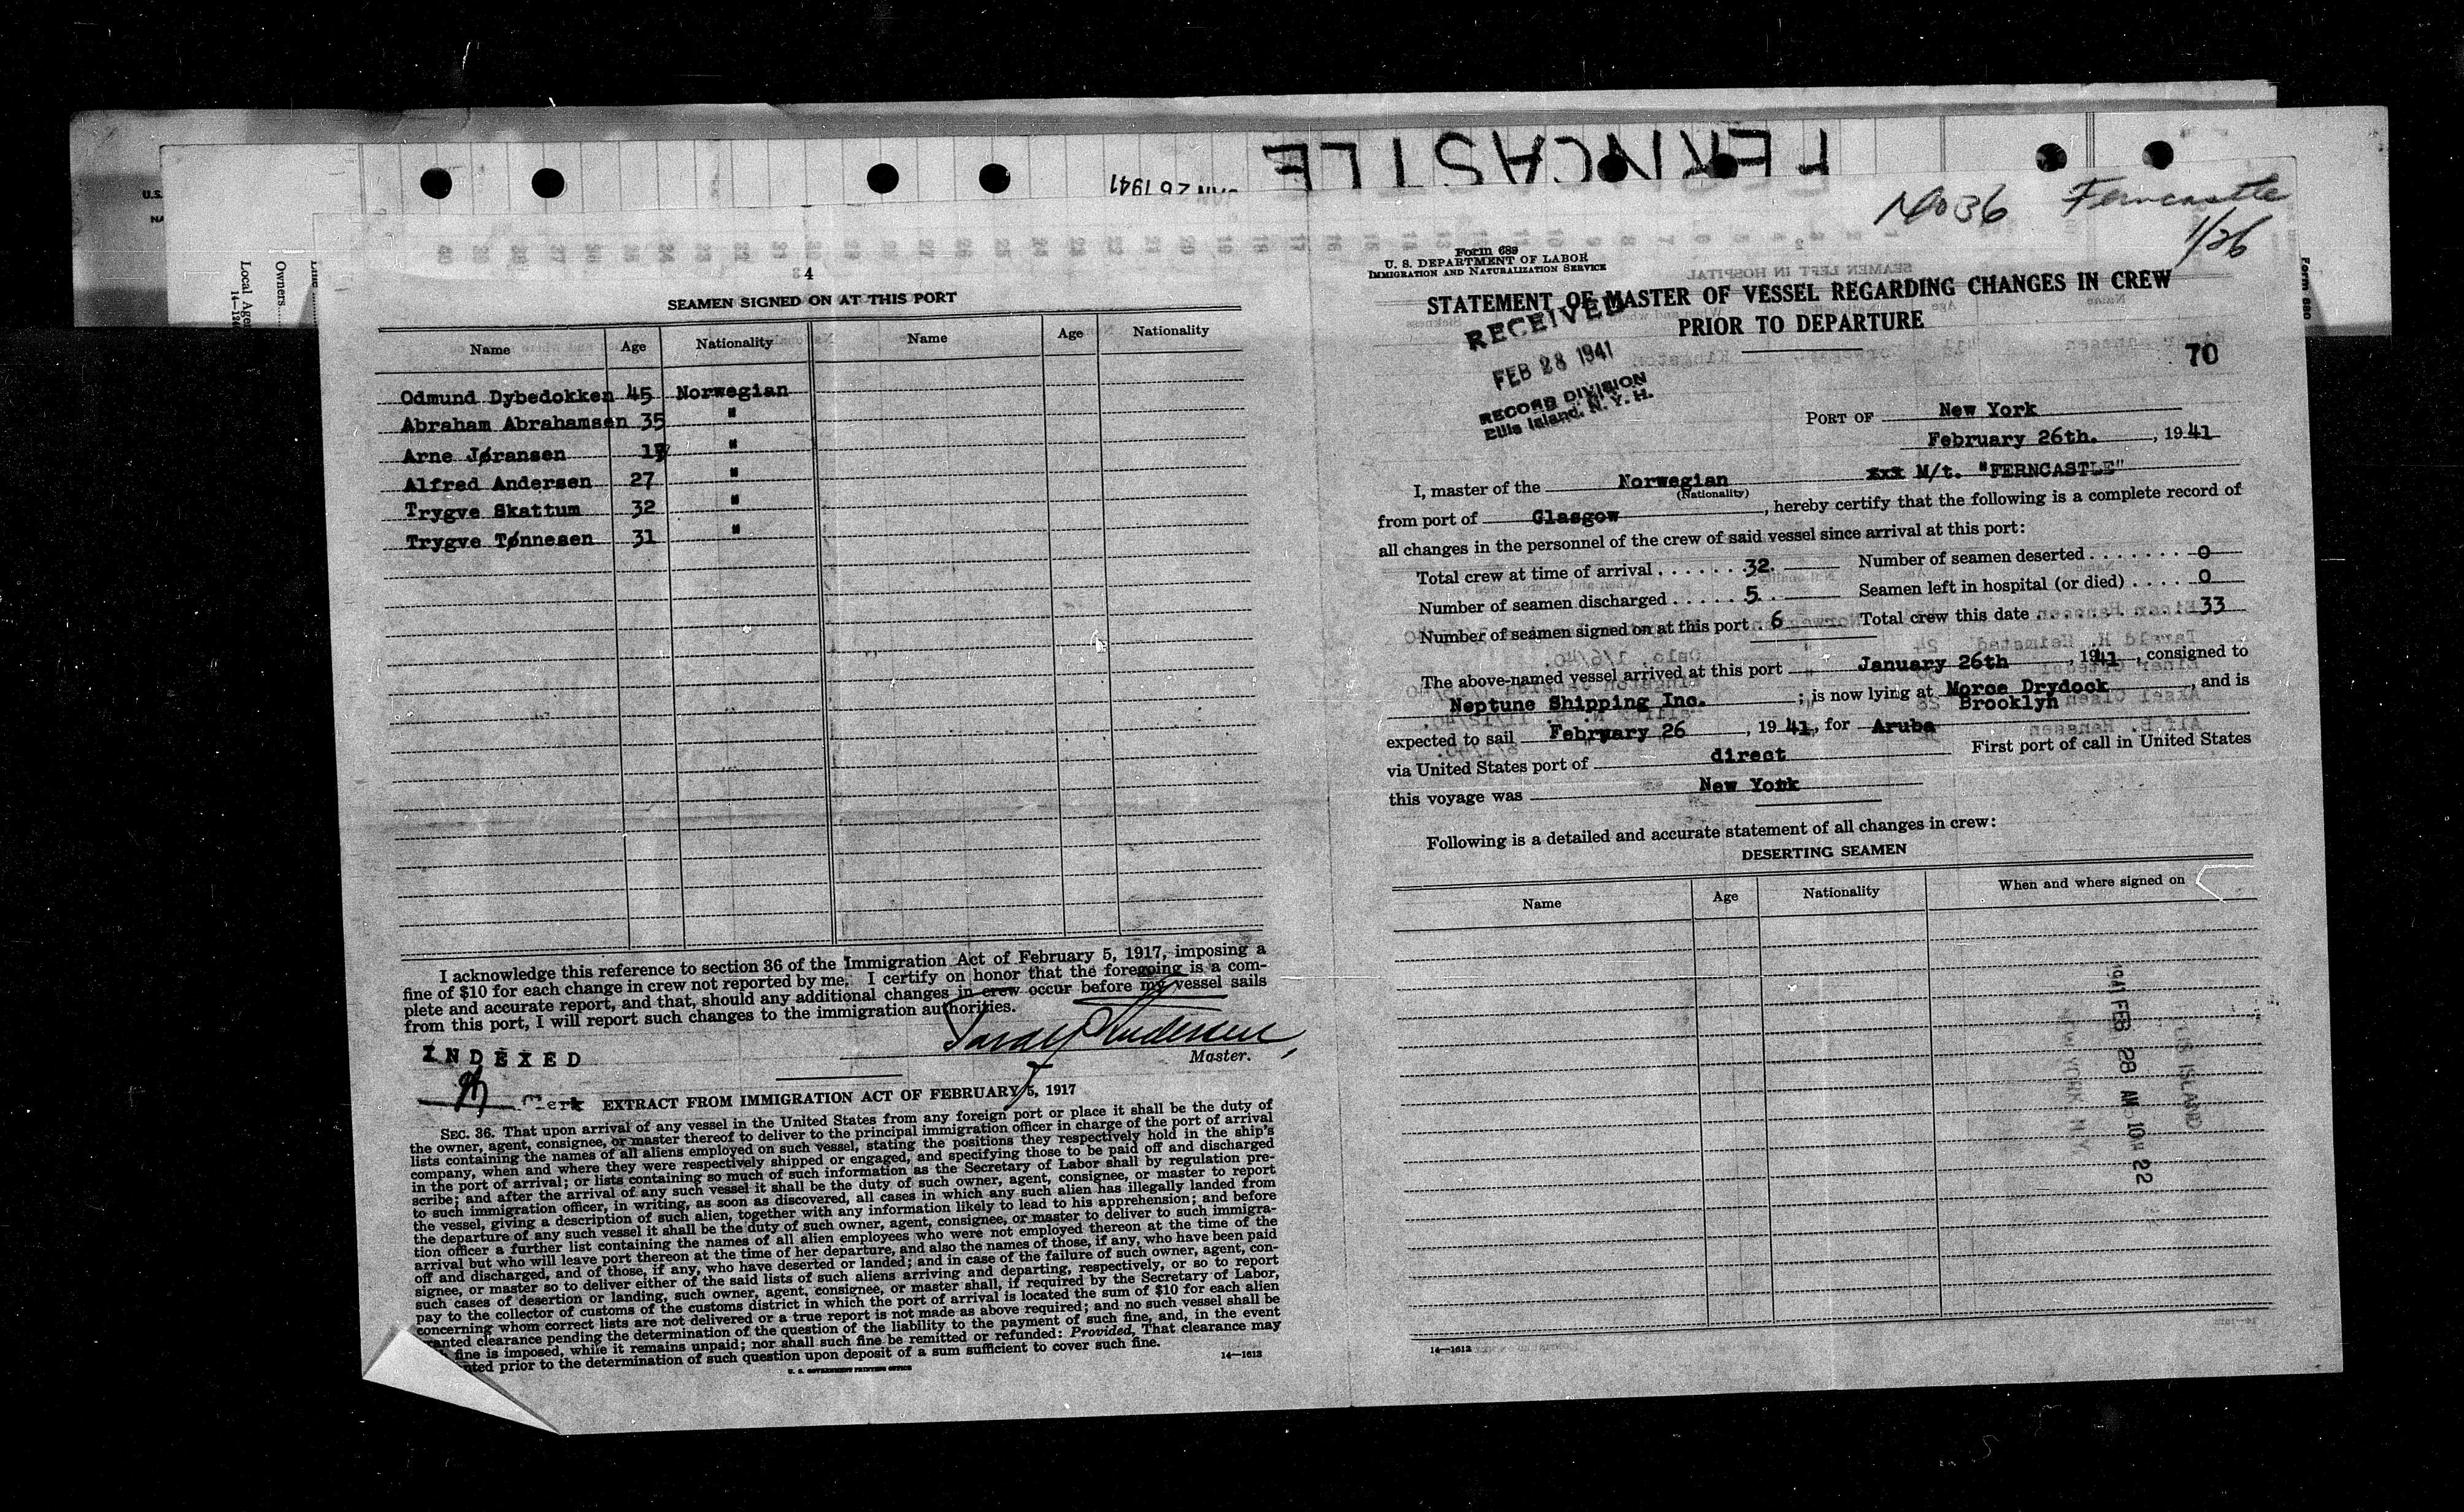 FERNCASTLE
JAN 26 1941
No 36 Ferncastle
1/26
U.S.
NA
Local Age
14—124
Owners
Form 680
4
SEAMEN SIGNED ON AT THIS PORT
Name Age Nationality Name Age Nationality
Odmund Dybedokken 45 Norwegian
Abraham Abrahamsen 35 "
Arne Jøransen "
Alfred Andersen 27 "
Trygve Skattum 32 "
Trygve Tønnesen 31 "
I acknowledge this reference to section 36 of the Immigration Act of February 5, 1917, imposing a
fine of $10 for each change in crew not reported by me. I certify on honor that the foregoing is a com-
plete and accurate report, and that, should any additional changes in crew occur before my vessel sails
from this port, I will report such changes to the immigration authorities.
Andersen
Master.
INDEXED
Clerk
EXTRACT FROM IMMIGRATION ACT OF FEBRUARY 5, 1917
SEC. 36. That upon arrival of any vessel in the United States from any foreign port or place it shall be the duty of
the owner, agent, consignee, or master thereof to deliver to the principal immigration officer in charge of the port of arrival
lists containing the names of all aliens employed on such vessel, stating the positions they respectively hold in the ship's
company, when and where they were respectively shipped or engaged, and specifying those to be paid off and discharged
in the port of arrival; or lists containing so much of such information as the Secretary of Labor shall by regulation pre-
scribe; and after the arrival of any such vessel it shall be the duty of such owner, agent, consignee, or master to report
to such immigration officer, in writing, as soon as discovered, all cases in which any such alien has illegally landed from
the vessel, giving a description of such alien, together with any information likely to lead to his apprehension; and before
the departure of any such vessel it shall be the duty of such owner, agent, consignee, or master to deliver to such immigra-
tion officer a further list containing the names of all alien employees who were not employed thereon at the time of the
arrival but who will leave port thereon at the time of her departure, and also the names of those, if any, who have been paid
off and discharged, and of those, if any, who have deserted or landed; and in case of the failure of such owner, agent, con-
signee, or master so to deliver either of the said lists of such aliens arriving and departing, respectively, or so to report
such cases of desertion or landing, such owner, agent, consignee, or master shall, if required by the Secretary of Labor,
pay to the collector of customs of the customs district in which the port of arrival is located the sum of $10 for each alien
concerning whom correct lists are not delivered or a true report is not made as above required; and no such vessel shall be
anted clearance pending the determination of the question of the liability to the payment of such fine, and, in the event
fine is imposed, while it remains unpaid; nor shall such fine be remitted or refunded: Provided, That clearance may
nted prior to the determination of such question upon deposit of a sum sufficient to cover such fine.
U. S. GOVERNMENT PRINTING OFFICE
14—1613
Form 689
U. S. DEPARTMENT OF LABOR
IMMIGRATION AND NATURALIZATION SERVICE
STATEMENT OF MASTER OF VESSEL REGARDING CHANGES IN CREW
PRIOR TO DEPARTURE
RECEIVED
FEB 28 1941
RECORD DIVISION
Ellis Island, N. Y. H.
70
PORT OF New York
February 26th. , 1941
I, master of the Norwegian xxx M/t. "FERNCASTLE"
(Nationality)
from port of Glasgow , hereby certify that the following is a complete record of
all changes in the personnel of the crew of said vessel since arrival at this port:
Total crew at time of arrival . . . . . . . 32. Number of seamen deserted . . . . . . . 0
Number of seamen discharged . . . . . 5. Seamen left in hospital (or died) . . . . . 0
Number of seamen signed on at this port 6 Total crew this date . . . . . . . . . . . 33
The above-named vessel arrived at this port January 26th , 1941 , consigned to
Neptune Shipping Inc. ; is now lying at Morce Drydock , and is
Brooklyn
expected to sail February 26 , 1941, for Aruba
via United States port of direct First port of call in United States
this voyage was New York
Following is a detailed and accurate statement of all changes in crew:
DESERTING SEAMEN
Name Age Nationality When and where signed on
1941 FEB 28 AM 10 22
ELLIS ISLAND
NEW YORK, N.Y.
14—1613